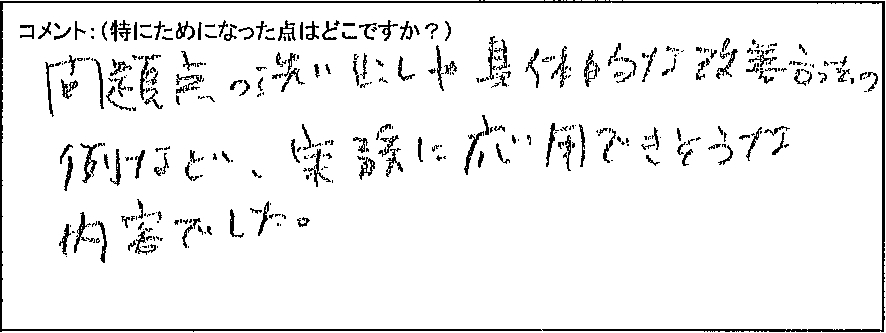 コメント：（特にためになった点はどこですか？）
問題点の洗い出しや具体的な改善方法の
例など、実務に応用できそうな
内容でした。